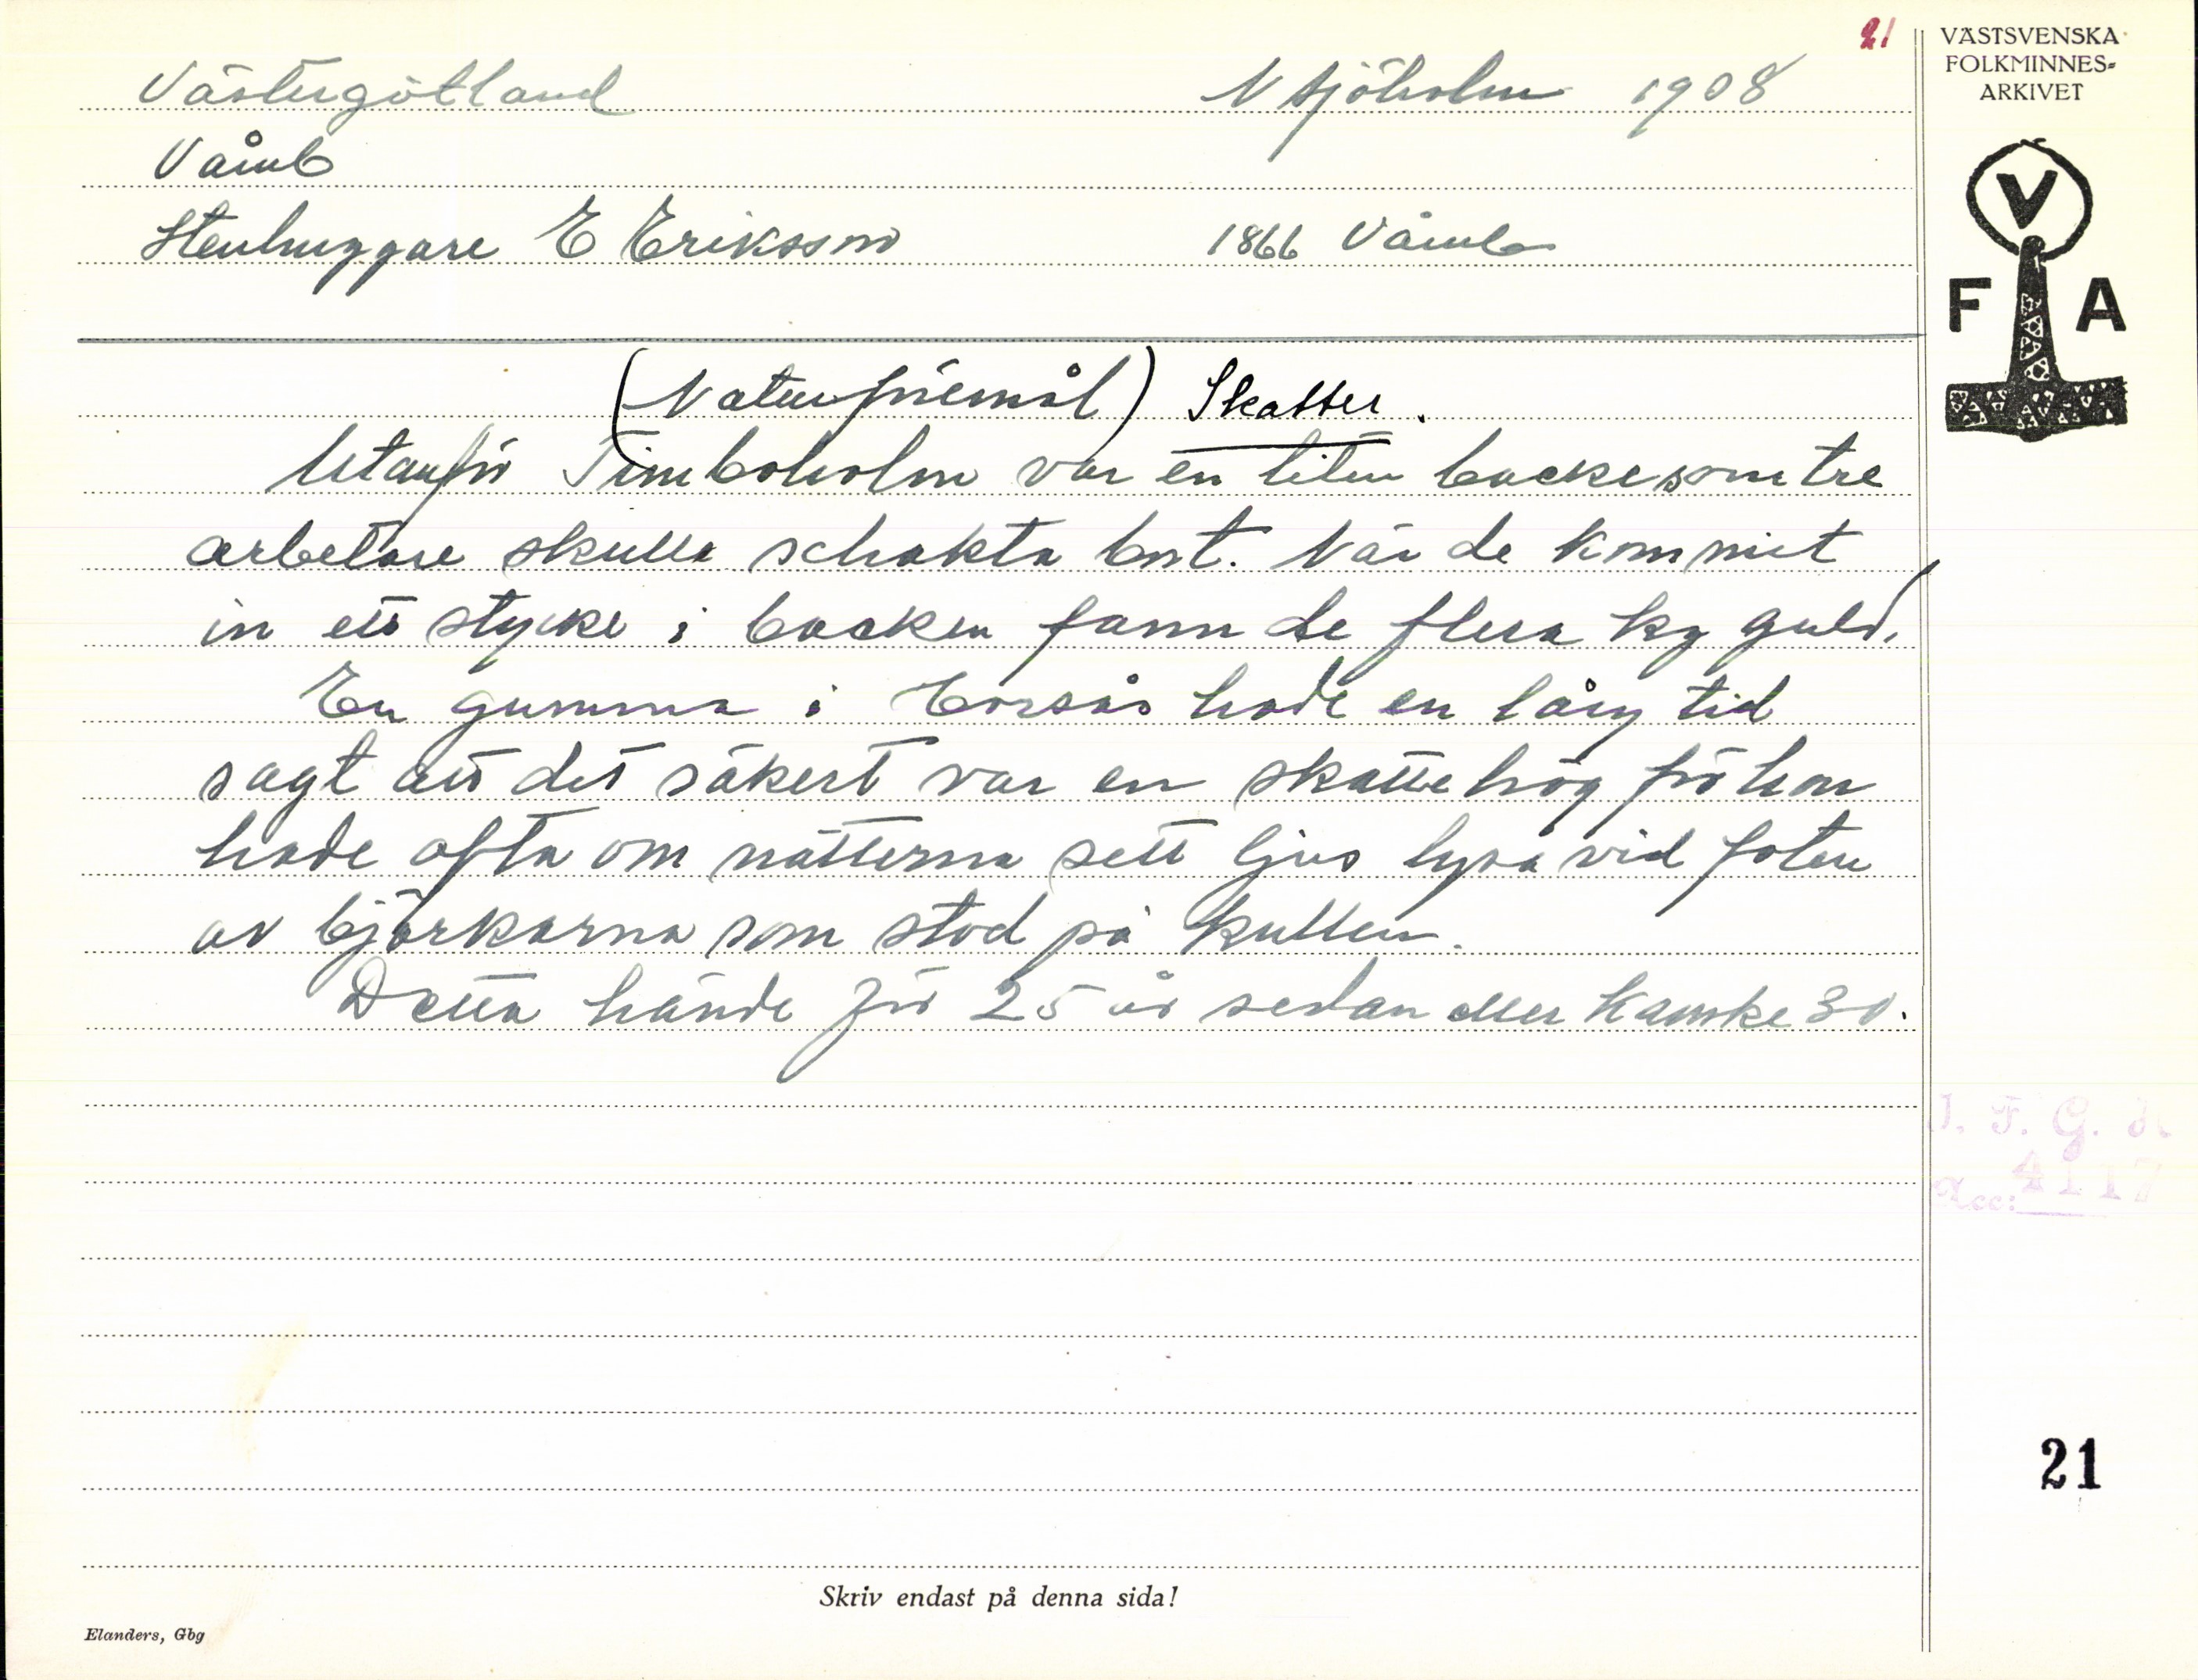 21
VÄSTSVENSKA
FOLKMINNES-
ARKIVET
Västergötland N Sjöholm 1908
Våmb
Stenhuggare E Eriksson 1866 Våmb
V
F A
(Naturföremål) Skatter.
Utanför Timboholm var en liten backe som tre
arbetare skulle schakta bort. När de kommit
in ett stycke i backen fann de flera kg guld.
En gumma i hade en lång tid
sagt att det säkert var en skattehög för hon
hade ofta om nätterna sett ljus lysa vid foten
av björkarna som stod på kullen.
Detta hände för 25 år sedan eller kanske 30.
I. F. G. H.
Acc: 4117
21
Skriv endast på denna sida!
Elanders, Gbg